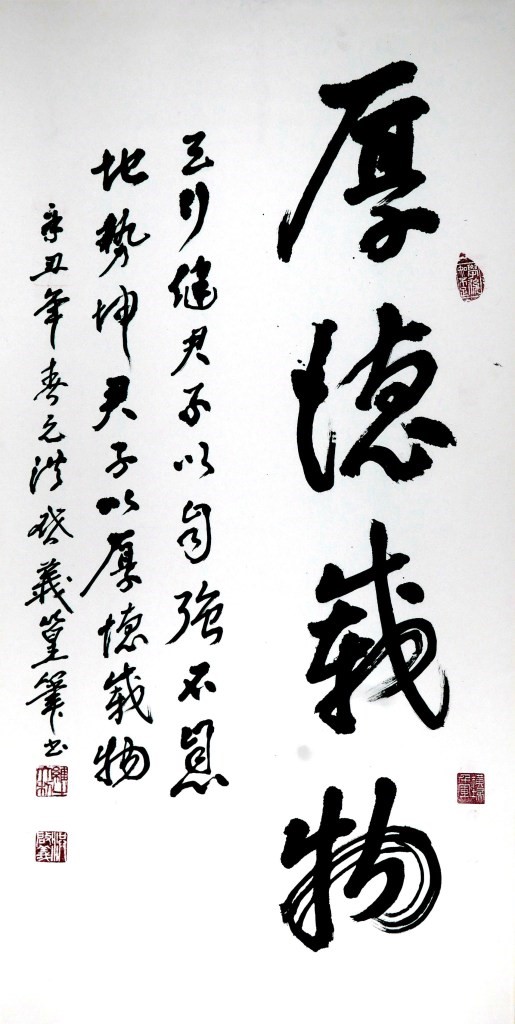 厚德載物
天行健君子以自強不息
地勢坤君子以厚德載物
辛丑年春元洪啟義篁筆书